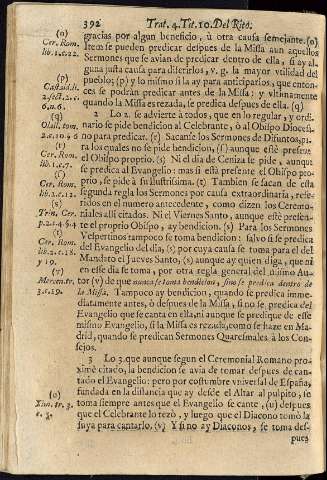 392 Trat. 4. Tit. 10. Del Rito.
gracias por algun beneficio, ù otra causa semejante. (n)
Item se pueden predicar despues de la Missa aun aquellos
Sermones que se avian de predicar dentro de ella, si ay al-
guna justa causa para diferirlos, v. g. la mayor vtilidad del
pueblo; (p) y lo mismo si la ay para anticiparlos, que enton-
ces se podràn predicar antes de la Missa: y vltimamente
quando la Missa es rezada, se predica despues de ella. (q)
2 Lo 2. se advierte à todos, que en lo regular, y ordi-
nario se pide bendicion al Celebrante, ò al Obispo Diocesi.
no para predicar. (r) Sacanse los Sermones de Difuntos, pa-
ra los quales no se pide bendicion, (s) aunque estè presente
el Obispo proprio. (s) Ni el dia de Ceniza se pide, aunque
se predica al Evangelio: mas si està presente el Obispo pro-
prio, se pide à su Ilustrissima. (t) Tambien se sacan de esta
segunda regla los Sermones por causa extraordinaria, refe-
ridos en el numero antecedente, como dizen los Ceremo-
niales alli citados. Ni el Viernes Santo, aunque estè presen-
te el proprio Obispo, ay bendicion. (s) Para los Sermones
Vespertinos tampoco se toma bendicion: salvo si se predica
el Evangelio del dia, (s) por cuya causa se toma para el del
Mandato el Jueves Santo, (s) aunque ay quien diga, que ni
en esse dia se toma, por otra regla general del mismo Au-
tor (v) de que nunca se toma bendicion, sino se predica dentro de
la Missa. Tampoco ay bendicion, quando se predica imme-
diatamente antes, ò despues de la Missa, sino se predica del
Evangelio que se canta en ella, ni aunque se predique de esse
mismo Evangelio, si la Missa es rezada, como se haze en Ma-
drid, quando se predican Sermones Quaresmales à los Con-
sejos.
3 Lo 3. que aunque segun el Ceremonial Romano pro-
ximè citado, la bendicion se avia de tomar despues de can-
tado el Evangelio: pero por costumbre vniversal de España,
fundada en la distancia que ay desde el Altar al pulpito, se
toma siempre antes que el Evangelio se cante, (u) despues
que el Celebrante lo rezò, y luego que el Diacono tomò la
suya para cantarlo. (v) Y si no ay Diaconos, se toma des-
pues
(n)
Cer. Rom.
lib. 1. c. 22.
(p)
(q)
(r)
Cer. Rom.
lib. 1. c. 7.
(s)
Cer. Rom.
(s)
(t)
Cer. Rom.
(v)